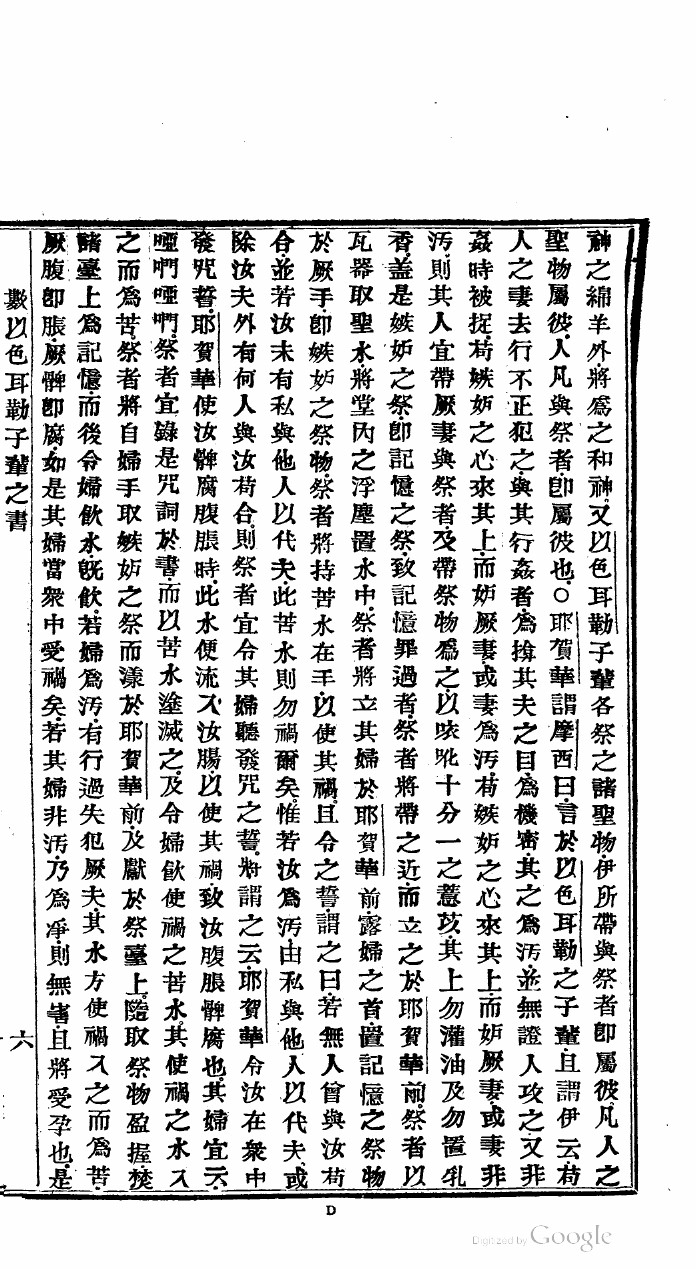 神之綿羊外將為之和神又以色耳勒子輩各祭之諸聖物伊所帶與祭者即屬彼凡人之
聖物屬彼人凡與祭者即屬彼也○耶賀華謂摩西曰言於以色耳勒之子輩且謂伊云茍
人之妻去行不正犯之與其行姦者為揜其夫之目為機密其之為汚並無證人攻之又非
姦時被捉茍嫉妒之心來其上而妒厥妻或妻為汚茍嫉妒之心來其上而妒厥妻或妻非
汚則其人宜帶厥妻與祭者及帶祭物為之以咴𠯈十分一之薏苡其上勿灌油及勿置乳
香蓋是嫉妒之祭即記憶之祭致記憶罪過者祭者將帶之近而立之於耶賀華前祭者以
瓦器取聖水將堂內之浮塵置水中祭者將立其婦於耶賀華前露婦之首置記憶之祭物
於厥手即嫉妒之祭物祭者將持苦水在手以使其禍且令之誓謂之曰若無人曾與汝茍
合並若汝未有私與他人以代夫此苦水則勿禍爾矣惟若汝為汚由私與他人以代夫或
除汝夫外有何人與汝茍合則祭者宜令其婦聽發咒之誓將謂之云耶賀華令汝在衆中
發咒誓耶賀華使汝髀腐腹脹時此水便流入汝腸以使其禍致汝腹脹髀腐也其婦宜云
啞們啞們祭者宜錄是咒詞於書而以苦水塗滅之及令婦飲使禍之苦水其使禍之水入
之而為苦祭者將自婦手取嫉妒之祭而漾於耶賀華前及獻於祭臺上隨取祭物盈握焚
諸臺上為記憶而後令婦飲水既飲若婦為汚有行過失犯厥夫其水方使禍入之而為苦
厥腹即脹厥髀即腐如是其婦當衆中受禍矣若其婦非汚乃為凈則無害且將受孕也是
數以色耳勒子輩之書 六
D
Digitized by Google